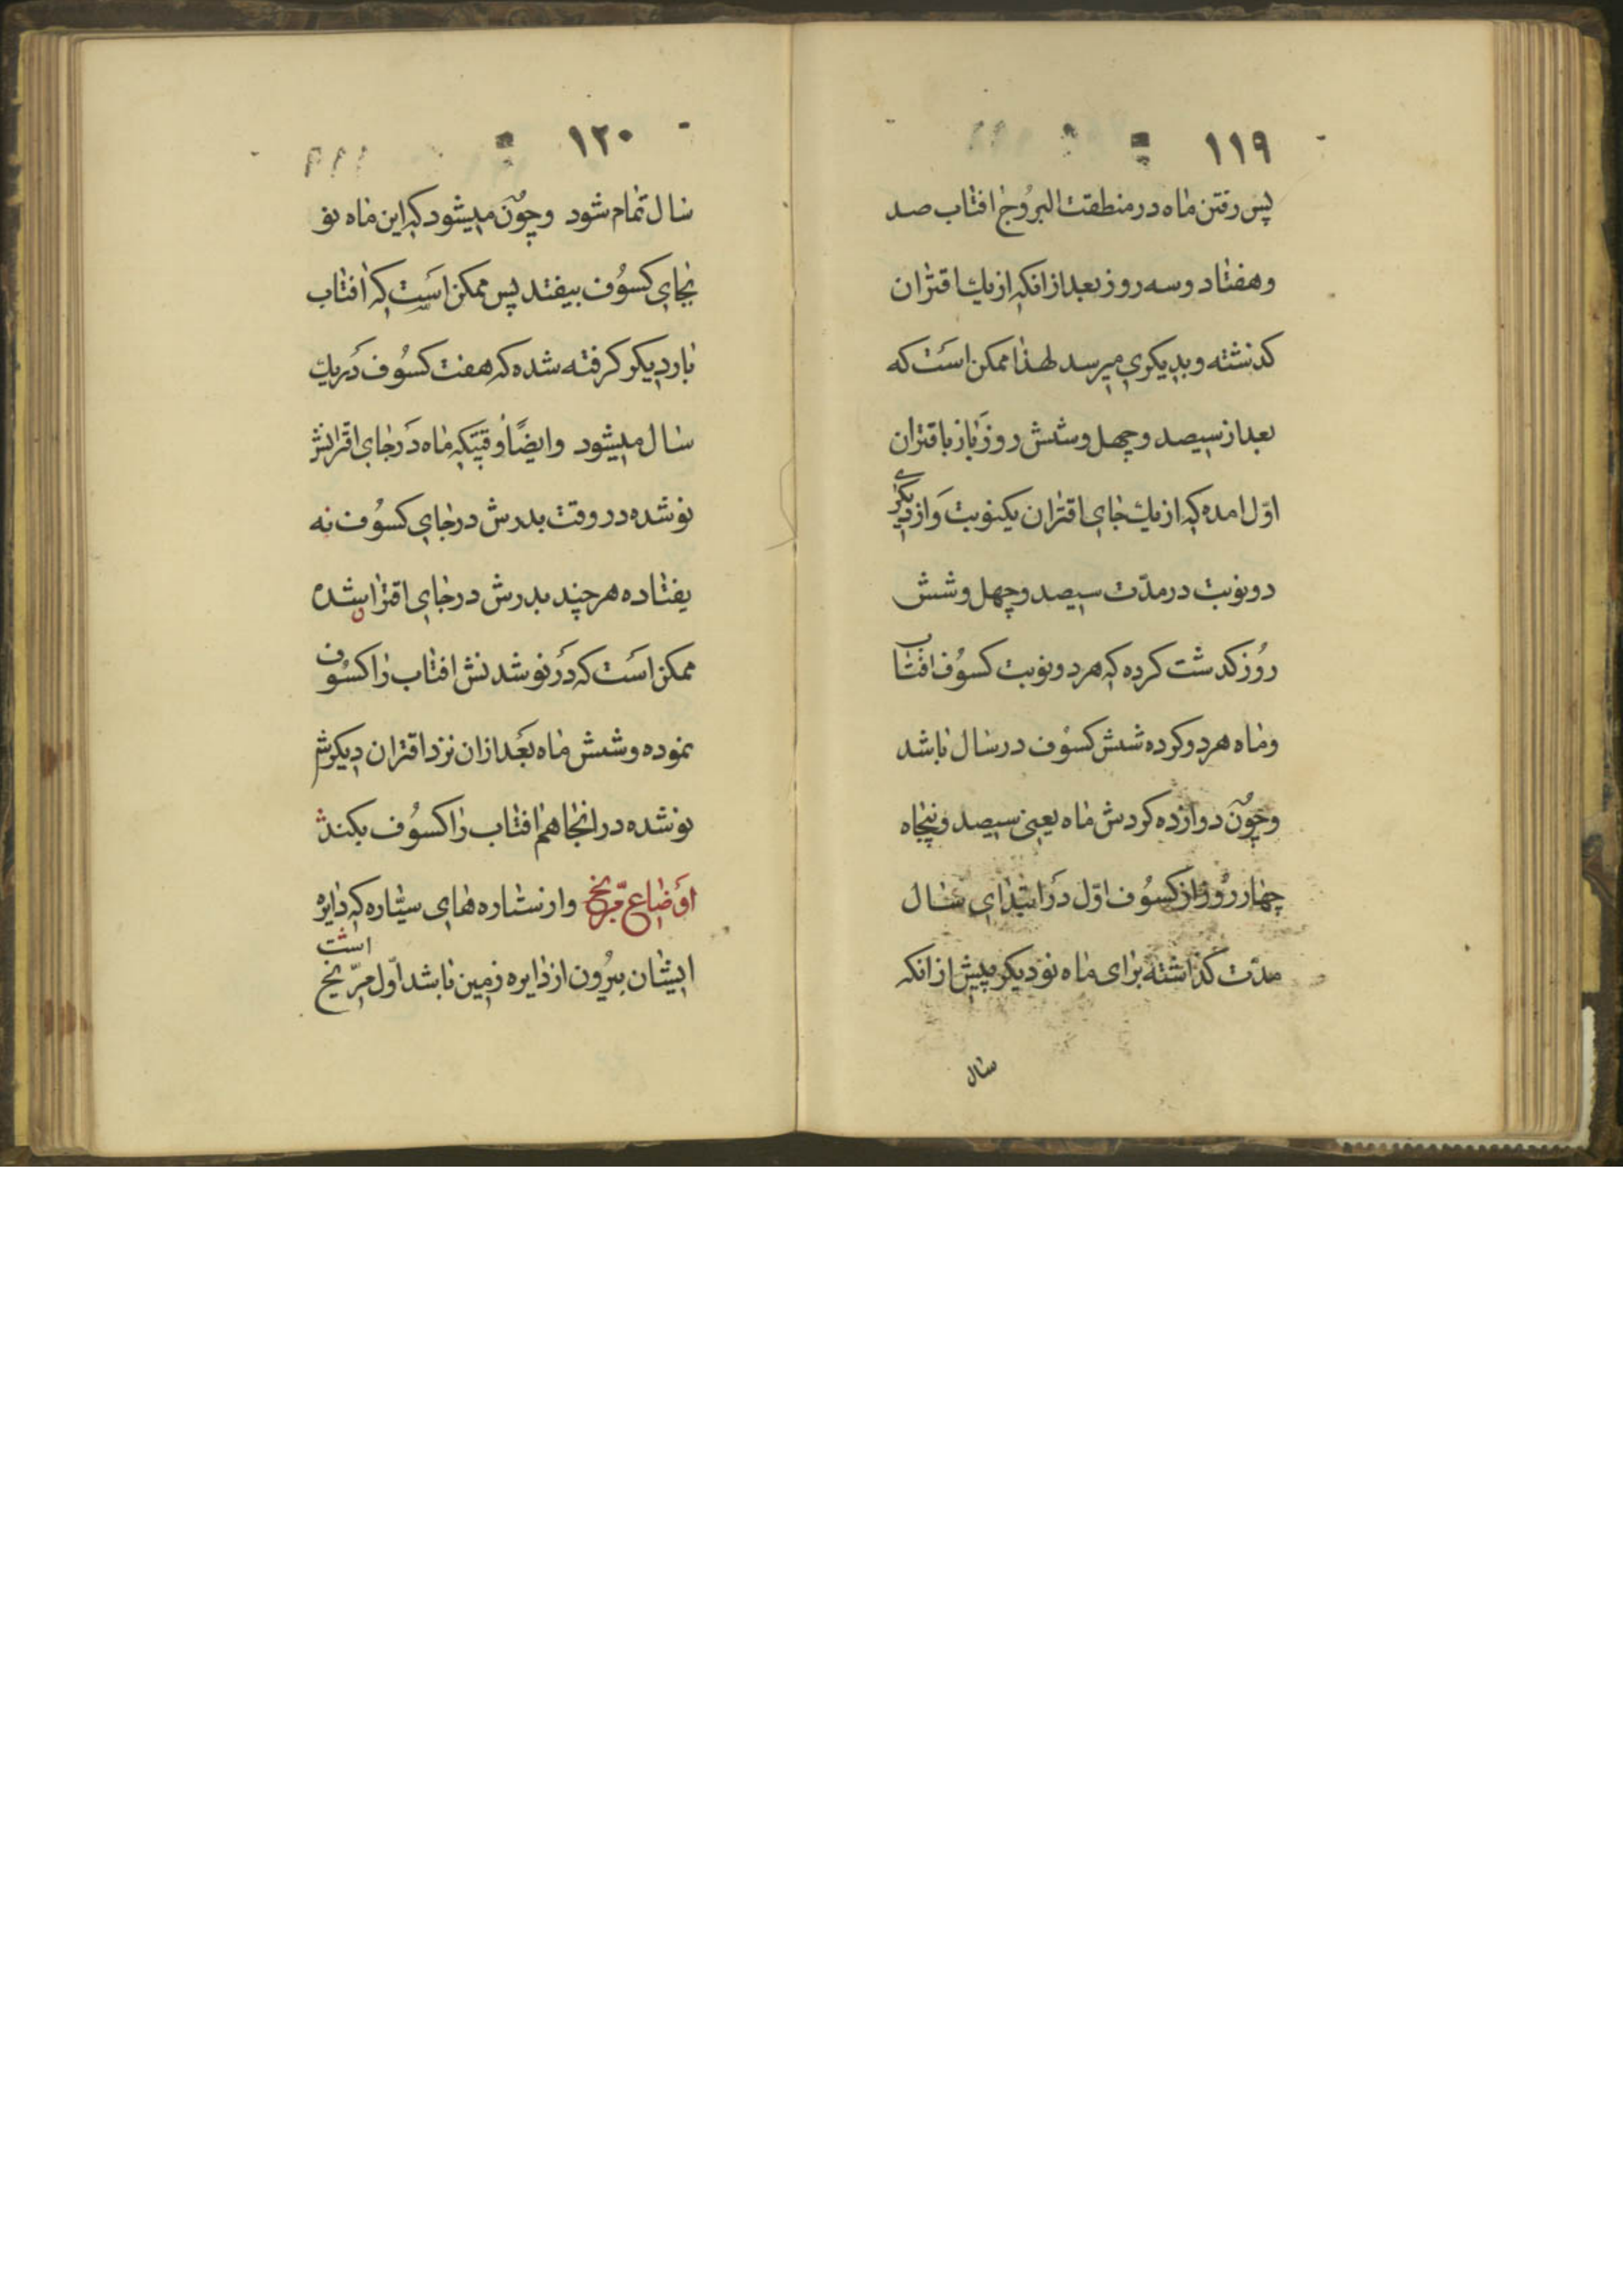 ١١٩
پس رفتن ماه در منطقت البروج افتاب صد
و هفتاد و سه روز بعد از انکه از یك اقتران
کذشته و بدیکری میرسد لهذا ممکن است که
بعد از سیصد و چهل و شش روز باز باقتران
اوّل امده که از یك جای اقتران یکنوبت و از دیکری
دو نوبت در مدّت سیصد و چهل و شش
روز کدشت کرده که هر دو نوبت کسوُف افتاب
و ماه هر دو کرده شش کسوُف در سال باشد
و چوُن دوازده کردش ماه یعنی سیصد و پنجاه
چهار روُز از کسوُف اوّل در ابتدای سال
مدّت کذاشته برای ماه نو دیکر پیش از انکه
سال
١٢٠
سال تمام شود و چوُن میشود که این ماه نو
بجای کسوُف بیفتد پس ممکن است که افتاب
بار دیکر کرفته شده که هفت کسوُف در یك
سال میشود و ایضًا وقتیکه ماه در جای اقترانش
نو شده در وقت بدرش در جای کسوُف نه
یفتاده هر چند بدرش در جای اقتران شده
ممکن است که در نو شدنش افتاب را کسوُف
نموده و شش ماه بعد از ان نزد اقتران دیکرش
نو شده در انجا هم افتاب را کسوُف بکند
اوضاع مرّیخ و از ستاره های سیّاره که دایره
ایشان بیروُن از دایره زمین باشد اوّل مرّیخ است